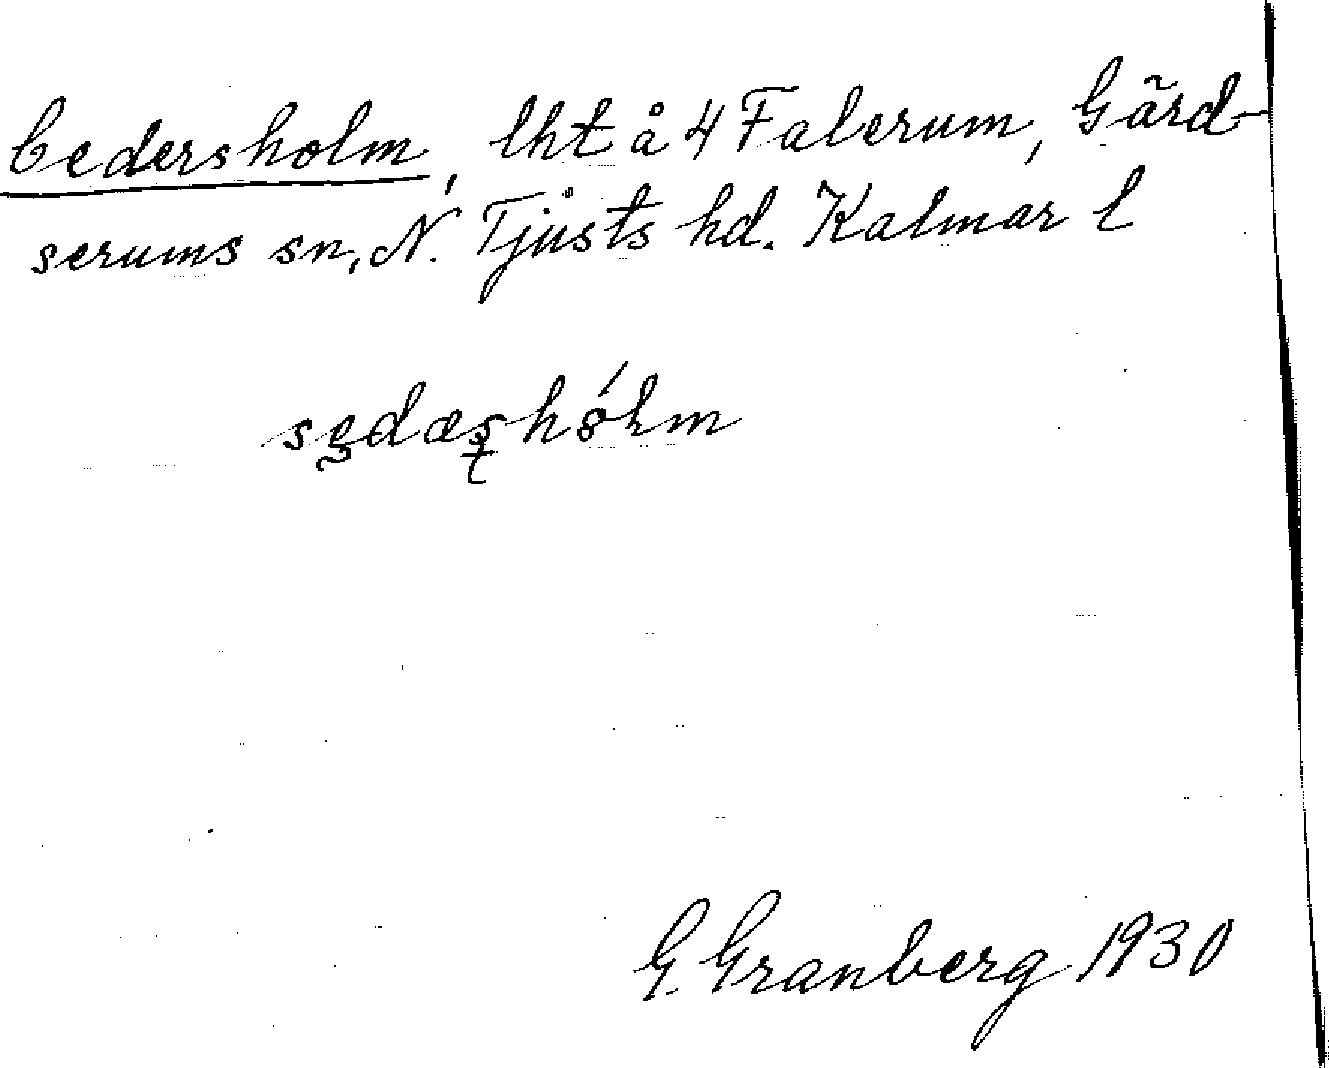 Cedersholm, lht å 4 Falerum, Gärd-
serums sn, N. Tjusts hd. Kalmar l
G. Granberg 1930